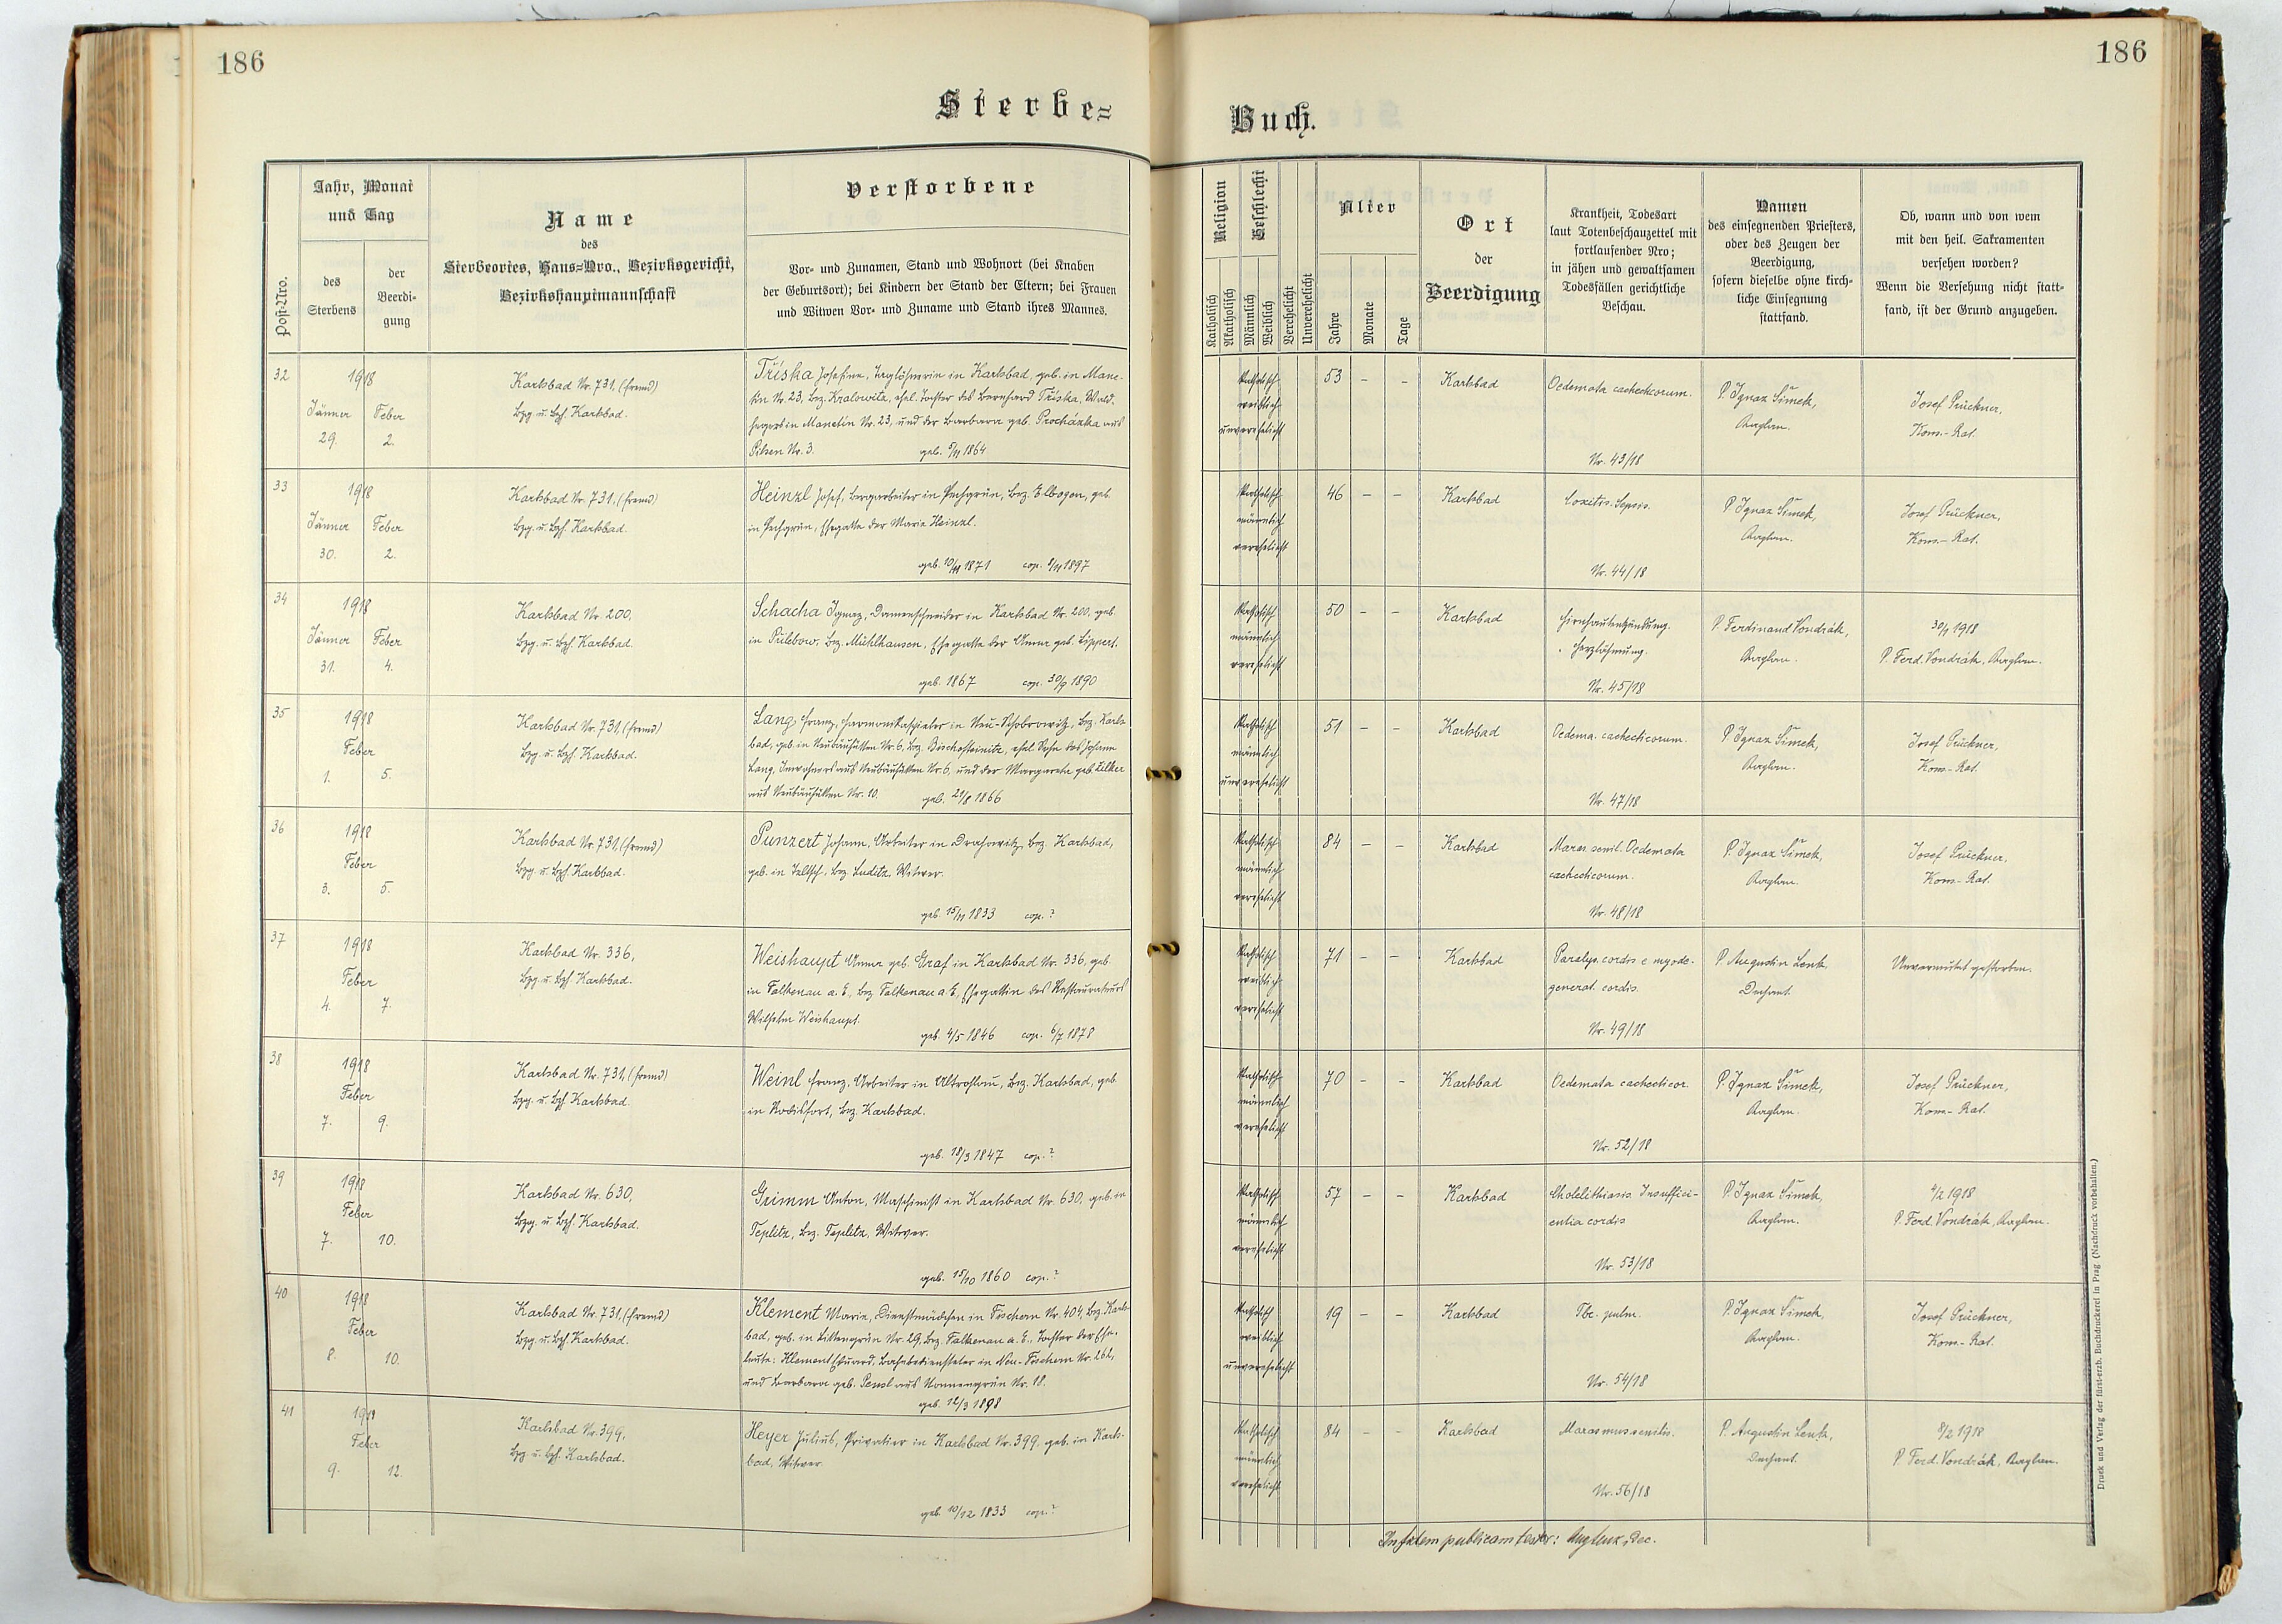 186
Sterbe=
Jahr, Monat
und Tag
Post-Nro.
des
Sterbens
der
Beerdi-
gung
Name
des
Sterbeortes, Haus=Nro., Bezirksgericht,
Bezirkshauptmannschaft
Verstorbene
Vor- und Zunamen, Stand und Wohnort (bei Knaben
der Geburtsort); bei Kindern der Stand der Eltern; bei Frauen
und Witwen Vor- und Zuname und Stand ihres Mannes.
32
1918
Jänner Feber
29. 2.
Karlsbad Nr. 731, (fremd)
Bzg. u. Bzh. Karlsbad.
Tříska Josefine, Taglöhnerin in Karlsbad, geb. in Mane-
tin Nr. 23, Bez. Kralowitz, ehel. Tochter des Bernhard Tříska, Wald-
hegers in Manetin Nr. 23, und der Barbara geb. Procházka aus
Pilsen Nr. 3. geb. 1864
33
1918
Jänner Feber
30. 2.
Karlsbad Nr. 731, (fremd)
Bzg. u. Bzh. Karlsbad.
Heinzl Josef, Bergarbeiter in Pechgrün, Bez. Elbogen, geb.
in Pechgrün, Ehegatte der Marie Heinzl.
geb. 10/11 1871 cop. 1897
34
1918
Jänner Feber
31. 4.
Karlsbad Nr. 200,
Bzg. u. Bzh. Karlsbad.
Schacha Ignaz, Damenschneider in Karlsbad Nr. 200, geb.
in Průlebow, Bez. Mühlhausen, Ehegatte der Anna geb. Lippert.
geb. 1867 cop. 30/9 1890
35
1918
Feber
1. 5.
Karlsbad Nr. 731, (fremd)
Bzg. u. Bzh. Karlsbad.
Lang Franz, Harmonikaspieler in Neu-Rohrowitz, Bez. Karls-
bad, geb. in Neubäuhütten Nr. 6, Bez. Bischofteinitz, ehel. Sohn des Johann
Lang, Inwohners aus Neubäuhütten Nr. 6, und der Margarethe geb. Zilker
aus Neubäuhütten Nr. 10. geb. 21/8 1866
36
1918
Feber
3. 5.
Karlsbad Nr. 731, (fremd)
Bzg. u. Bzh. Karlsbad.
Punzert Johann, Arbeiter in Drahowitz, Bez. Karlsbad,
geb. in Taltsch, Bez. Luditz, Witwer.
geb. 15/11 1833 cop. ?
37
1918
Feber
4. 7.
Karlsbad Nr. 336,
Bzg. u. Bzh. Karlsbad.
Weishaupt Anna geb. Graf in Karlsbad Nr. 336, geb.
in Falkenau a. E., Bez. Falkenau a. E., Ehegattin des Restaurateurs
Wilhelm Weishaupt.
geb. 4/5 1846 cop. 6/7 1878
38
1918
Feber
7. 9.
Karlsbad Nr. 731, (fremd)
Bzg. u. Bzh. Karlsbad.
Weinl Franz, Arbeiter in Altrohlau, Bez. Karlsbad, geb.
in Rodisfort, Bez. Karlsbad.
geb. 18/3 1847 cop. ?
39
1918
Feber
7. 10.
Karlsbad Nr. 630,
Bzg. u. Bzh. Karlsbad.
Grimm Anton, Maschinist in Karlsbad Nr. 630, geb. in
Teplitz, Bez. Teplitz, Witwer.
geb. 15/10 1860 cop. ?
40
1918
Feber
8. 10.
Karlsbad Nr. 731, (fremd)
Bzg. u. Bzh. Karlsbad.
Klement Marie, Dienstmädchen in Fischern Nr. 404, Bez. Karls-
bad, geb. in Littengrün Nr. 29, Bez. Falkenau a. E., Tochter der Ehe-
leute: Klement Eduard, Bahnbediensteter in Neu-Fischern Nr. 262,
und Barbara geb. Pensl aus Nonnengrün Nr. 18.
geb. 12/3 1898
41
1918
Feber
9. 12.
Karlsbad Nr. 399,
Bzg. u. Bzh. Karlsbad.
Heyer Julius, Privatier in Karlsbad Nr. 399, geb. in Karls-
bad, Witwer.
geb. 10/12 1833 cop. ?
186
Buch.
Religion
Katholisch
Akatholisch
Geschlecht
Männlich
Weiblich
Verehelicht
Unverehelicht
Alter
Jahre
Monate
Tage
Ort
der
Beerdigung
Krankheit, Todesart
laut Totenbeschauzettel mit
fortlaufender Nro;
in jähen und gewaltsamen
Todesfällen gerichtliche
Beschau.
Namen
des einsegnenden Priesters,
oder des Zeugen der
Beerdigung,
sofern dieselbe ohne kirch-
liche Einsegnung
stattfand.
Ob, wann und von wem
mit den heil. Sakramenten
versehen worden?
Wenn die Versehung nicht statt-
fand, ist der Grund anzugeben.
katholisch
weiblich
unverehelicht
53 - -
Karlsbad
Oedemata cachecticorum.
Nr. 43/18
P. Ignaz Šimek,
Kaplan.
Josef Prückner,
Kons.-Rat.
katholisch
männlich
verehelicht
46 - -
Karlsbad
Coxitis. Sepsis.
Nr. 44/18
P. Ignaz Šimek,
Kaplan.
Josef Prückner,
Kons.-Rat.
katholisch
männlich
verehelicht
50 - -
Karlsbad
Hirnhautentzündung.
Herzlähmung.
Nr. 45/18
P. Ferdinand Vondrák,
Kaplan.
30/1 1918
P. Ferd. Vondrák, Kaplan.
katholisch
männlich
unverehelicht
51 - -
Karlsbad
Oedema. cachecticorum.
Nr. 47/18
P. Ignaz Šimek,
Kaplan.
Josef Prückner,
Kons.-Rat.
katholisch
männlich
verehelicht
84 - -
Karlsbad
Maras. senil. Oedemata
cachecticorum.
Nr. 48/18
P. Ignaz Šimek,
Kaplan.
Josef Prückner,
Kons.-Rat.
katholisch
weiblich
verehelicht
71 - -
Karlsbad
Paralys. cordis e myode-
generat. cordis.
Nr. 49/18
P. Augustin Lenk,
Dechant.
Unvermutet gestorben.
katholisch
männlich
verehelicht
70 - -
Karlsbad
Oedemata cachecticor.
Nr. 52/18
P. Ignaz Šimek,
Kaplan.
Josef Prückner,
Kons.-Rat.
katholisch
männlich
verehelicht
57 - -
Karlsbad
Cholelithiasis. Insuffici-
entia cordis
Nr. 53/18
P. Ignaz Šimek,
Kaplan.
4/2 1918
P. Ferd. Vondrák, Kaplan.
katholisch
weiblich
unverehelicht
19 - -
Karlsbad
Tbc. pulm.
Nr. 54/18
P. Ignaz Šimek,
Kaplan.
Josef Prückner,
Kons.-Rat.
katholisch
männlich
verehelicht
84 - -
Karlsbad
Marasmus senilis.
Nr. 56/18
P. Augustin Lenk,
Dechant.
8/2 1918
P. Ferd. Vondrák, Kaplan.
In fidem publicam testor: Aug Lenk, Dec.
Druck und Verlag der fürst-erzb. Buchdruckerei in Prag (Nachdruck vorbehalten.)